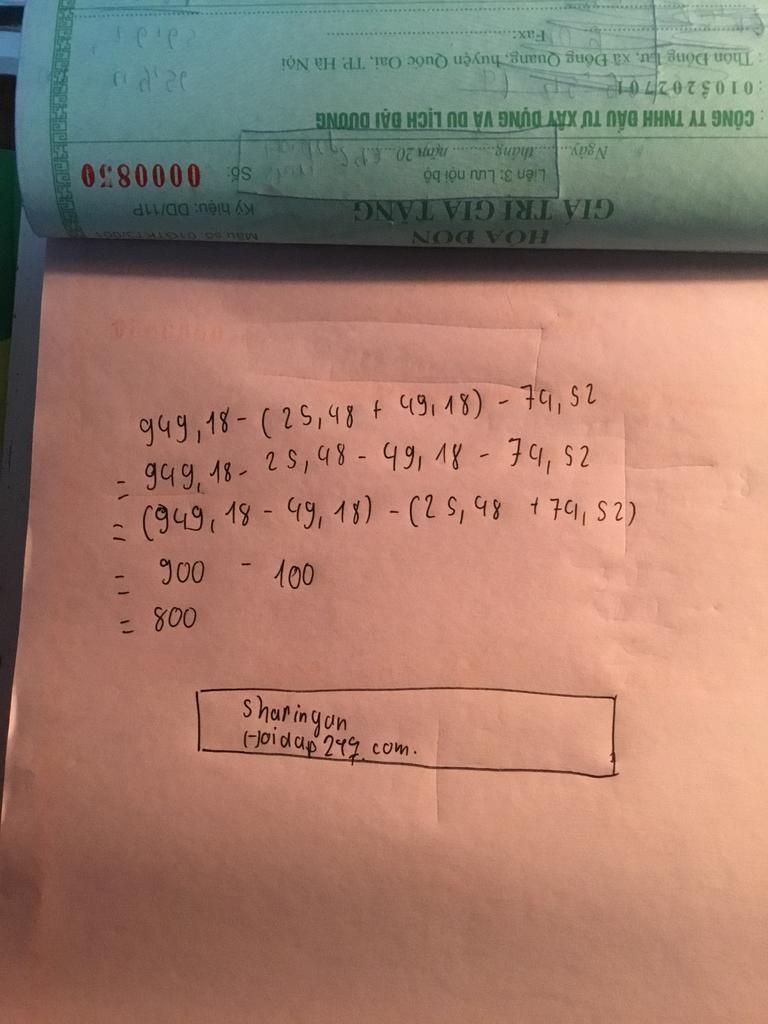 Fax:
Thôn Đông Lư, xã Đông Quang, huyện Quốc Oai, TP. Hà Nội
: 0105202701
: CÔNG TY TNHH ĐẦU TƯ XÂY DỰNG VÀ DU LỊCH ĐẠI DƯƠNG
Ngày......... tháng......... năm 20......
Liên 3: Lưu nội bộ
Số: 0000830
GIÁ TRỊ GIA TĂNG
Ký hiệu: DD/11P
HÓA ĐƠN
949,18 - (25,48 + 49,18) - 74,52
= 949,18 - 25,48 - 49,18 - 74,52
= (949,18 - 49,18) - (25,48 + 74,52)
= 900 - 100
= 800
Sharingan
Hoidap247.com.